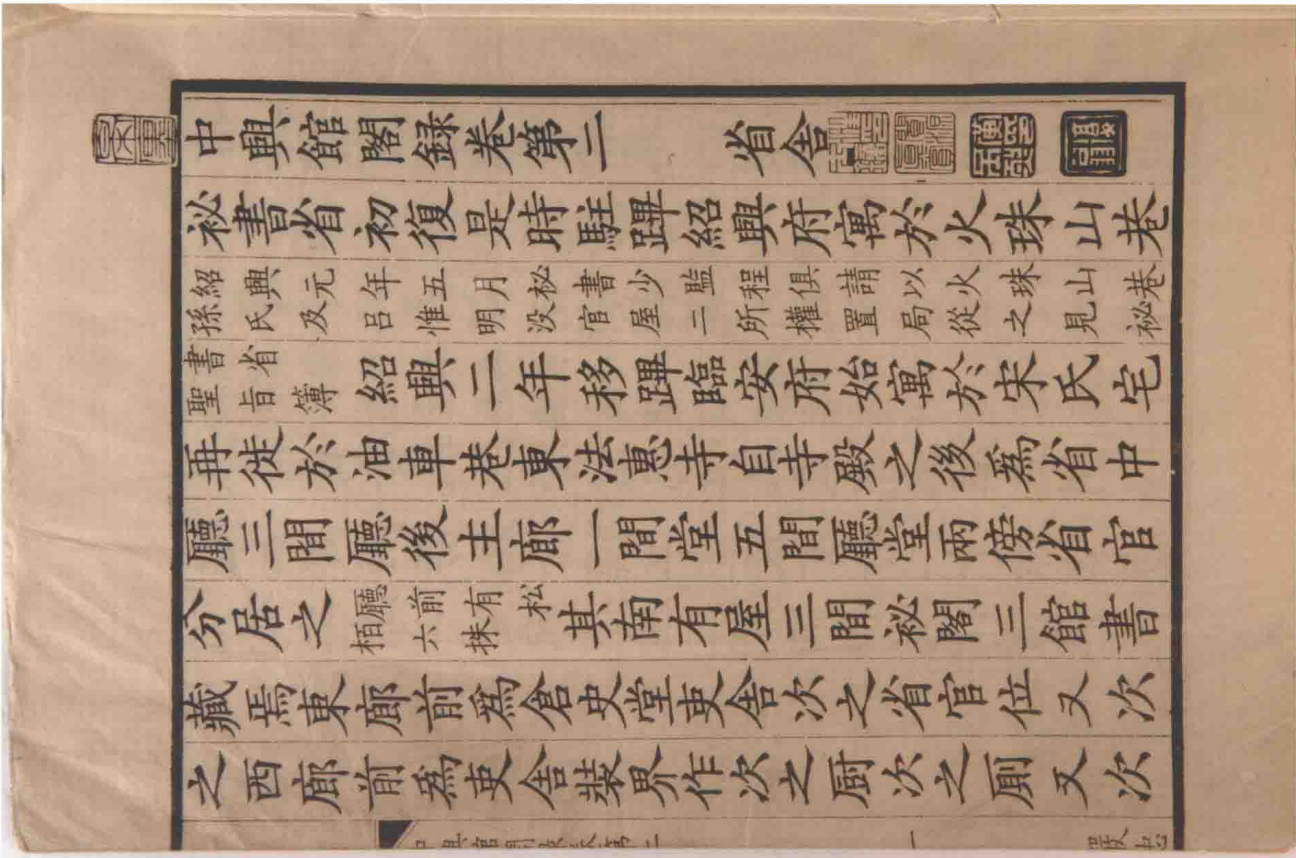 中興館閣録卷第二 省舍
祕書省初復是時駐蹕紹興府寓於火珠山巷
紹興元年五月祕書少監程俱請以火珠山巷
孫氏及呂惟明没官屋二所權置局從之見祕
書省聖旨簿 紹興二年移蹕臨安府始寓於宋氏宅
再徙於油車巷東法惠寺自寺殿之後爲省中
廳三間廳後主廊一間堂五間廳堂兩傍省官
分居之 廳前有松柏六株 其南有屋三間祕閣三館書
藏焉東廊前爲倉史堂吏舍次之省官位又次
之西廊前爲吏舍裝界作次之厨次之厠又次